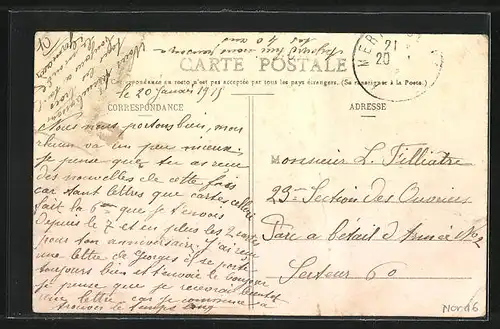 Aujourd'hui nous pensons
tes 40 ans
CARTE POSTALE
La correspondance au recto n'est pas acceptée par tous les pays étrangers. (Se renseigner à la Poste.)
MER
21
20
le 20 Janvier 1915
CORRESPONDANCE
ADRESSE
Nous nous portons bien, mon
rhum va un peu mieux.
je pense que tu as reçu
des nouvelles de cette fois
car tant lettres que cartes celle-ci
fait la 6me que je t'envois
depuis le 7 et en plus les 2 cartes
pour ton anniversaire, j'ai reçu
une lettre de Georges il se porte
toujours bien et t'envoie le bonjour
je pense que je recevrai bientôt
une lettre car je commence à
trouver le temps long
Monsieur L. Filliatre
23me Section des Ouvriers
Parc à bétail d'Armée No 2
Secteur 60
Nor. 46